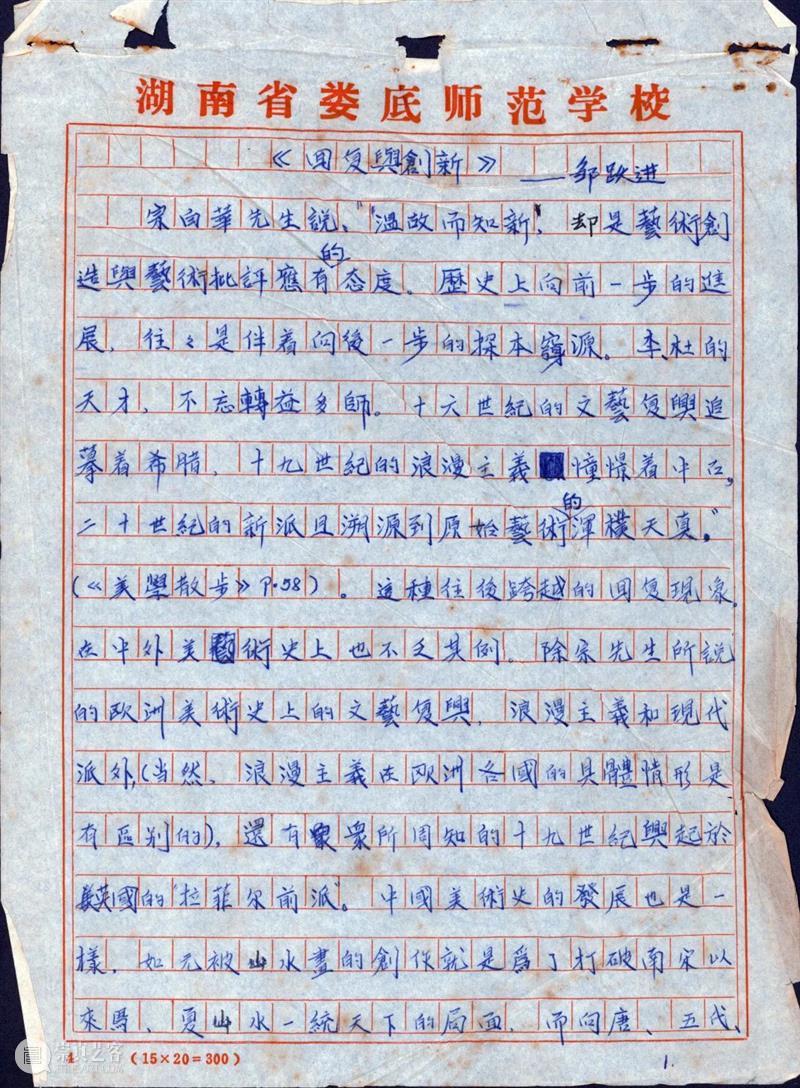 湖南省娄底师范学校
《回复與創新》
——邹跃进
宗白華先生説、“温故而知新”，却是藝術創
造與藝術批評應有的态度。歷史上向前一步的進
展，往々是伴着向後一步的探本窮源。李、杜的
天才，不忘轉益多師。十六世紀的文藝復興追
摹着希腊，十九世紀的浪漫主義憧憬着中古，
二十世紀的新派且溯源到原始藝術的渾樸天真。”
（《美學散步》P.58）。這種往後跨越的回复現象，
在中外美術史上也不乏其例。除宗先生所説
的欧洲美術史上的文藝復興，浪漫主義和現代
派外，（当然，浪漫主義在欧洲各國的具體情形是
有區别的），還有衆所周知的十九世紀興起於
英國的“拉菲尔前派”。中國美術史的發展也是一
樣，如元被山水畫的創作就是爲了打破南宋以
來馬、夏山水一統天下的局面，而向唐、五代、
（15×20＝300）
1.
崇真艺客